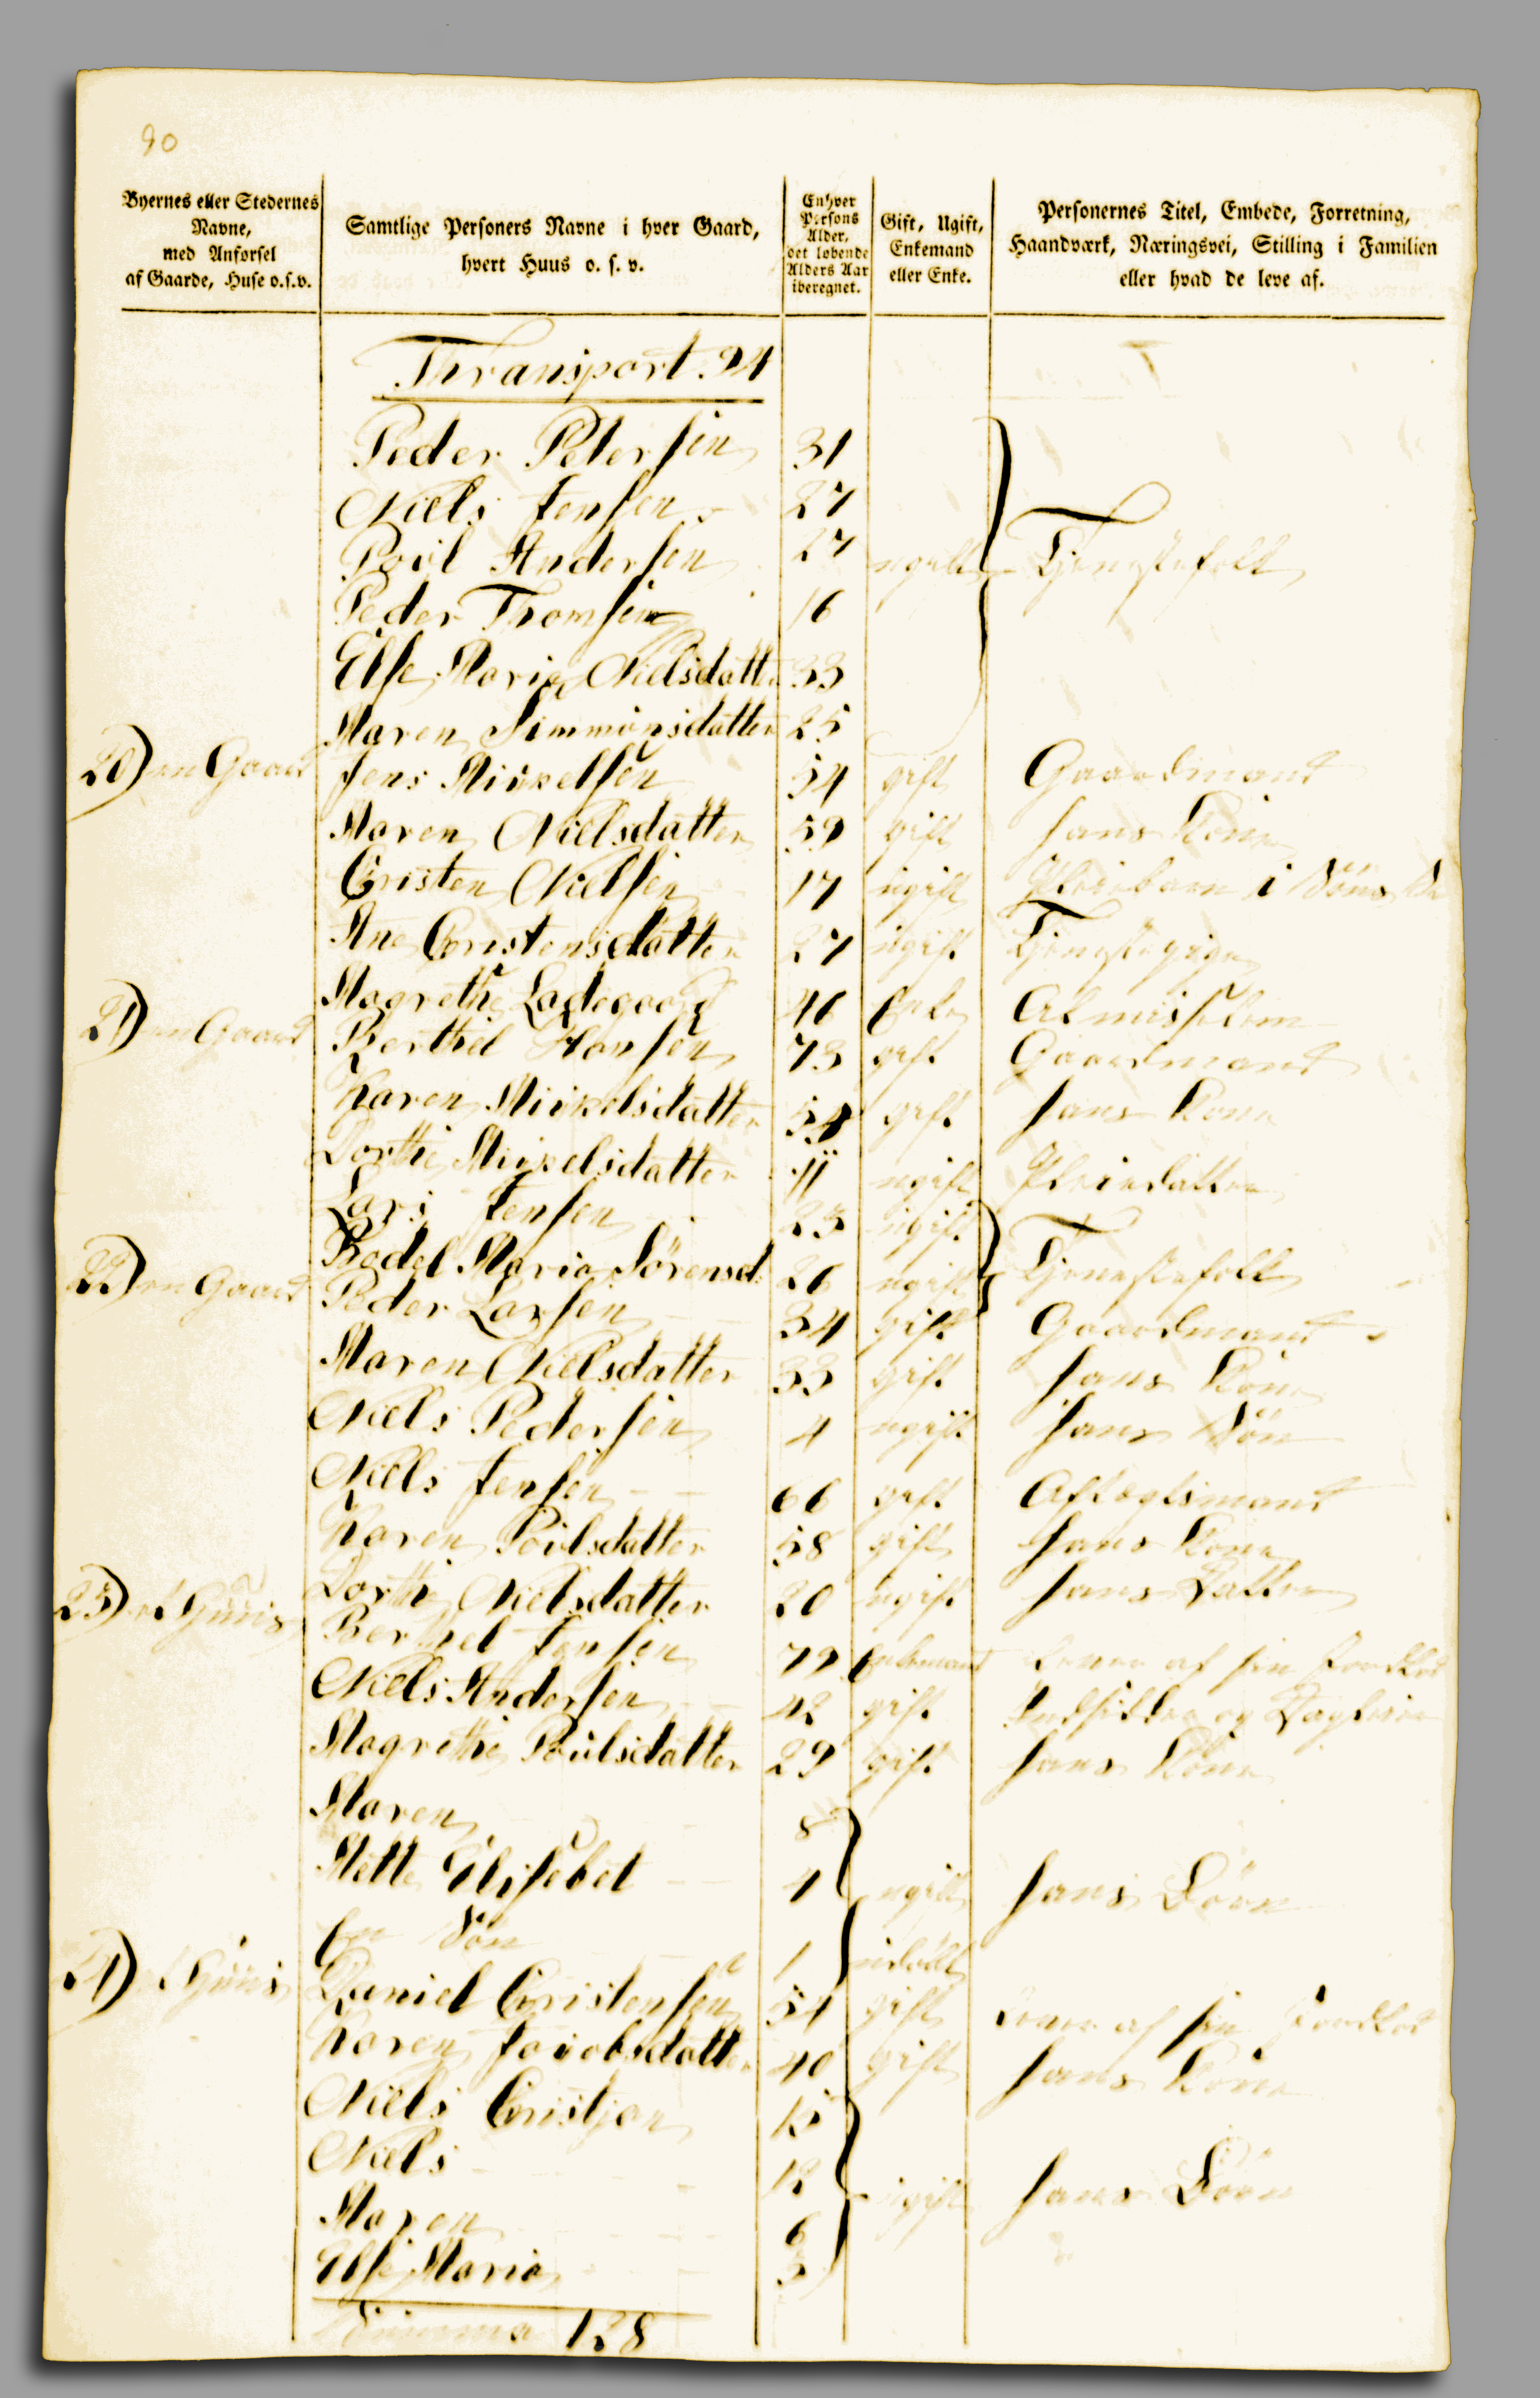 90
Byernes eller Stedernes Navne, med Anførsel af Gaarde, Huse o.s.v.
Samtlige Personers Navne i hver Gaard, hvert Huus o. s. v.
Enhver Persons Alder, det løbende Alders Aar iberegnet.
Gift, Ugift, Enkemand eller Enke.
Personernes Titel, Embede, Forretning, Haandværk, Næringsvei, Stilling i Familien eller hvad de leve af.
Thransport. 94
Peder Petersen 31
Niels Jensen 27
Povl Andersen 27 ugift Tjenestefolk
Peder Thomsen 16
Else Maria Nielsdatter 33
Maren Simmonsdatter 25
20) en Gaard Jens Mickelsen 54 gift Gaardmand
Maren Nielsdatter 59 gift hans Kone
Cristen Nielsen 17 ugift Pleiebarn i Søns
Ane Cristensdatter 27 ugift Tjenestepige
Magrethe Ladegaard 46 Enke Almisselem
21) en Gaard Berthel Hansen 73 gift Gaardmand
Karen Mickelsdatter 54 gift hans Kone
Dorthe Mickelsdatter 11 ugift Pleiedatter
Lars Jensen 25 ugift
Bodel Maria Sørensd: 26 ugift Tjenestefolk
22) en Gaard Peder Larsen 34 gift Gaardmand
Maren Nielsdatter 33 gift hans Kone
Niels Pedersen 4 ugift hans Søn
Niels Jensen 66 gift Aftægtsmand
Karen Poulsdatter 58 gift hans Kone
Dorthe Nielsdatter 20 ugift hans Datter
23) et Huus Berthel Jensen 79 Enkemand Lever af sin Jordlod
Niels Andersen 42 gift Indsidder og Dagleier
Magrethe Poulsdatter 29 gift hans Kone
Maren 8
Mette Elisebet 4 ugift hans Børn
En Søn 1 udøbt
24) et Huus Daniel Cristensen 54 gift Lever af sin Jordlod
Karen Jacobsdatter 40 gift hans Kone
Niels Cristjan 15
Niels 12 ugift hans Børn
Maren 6
Else Maria 3
Summa 128